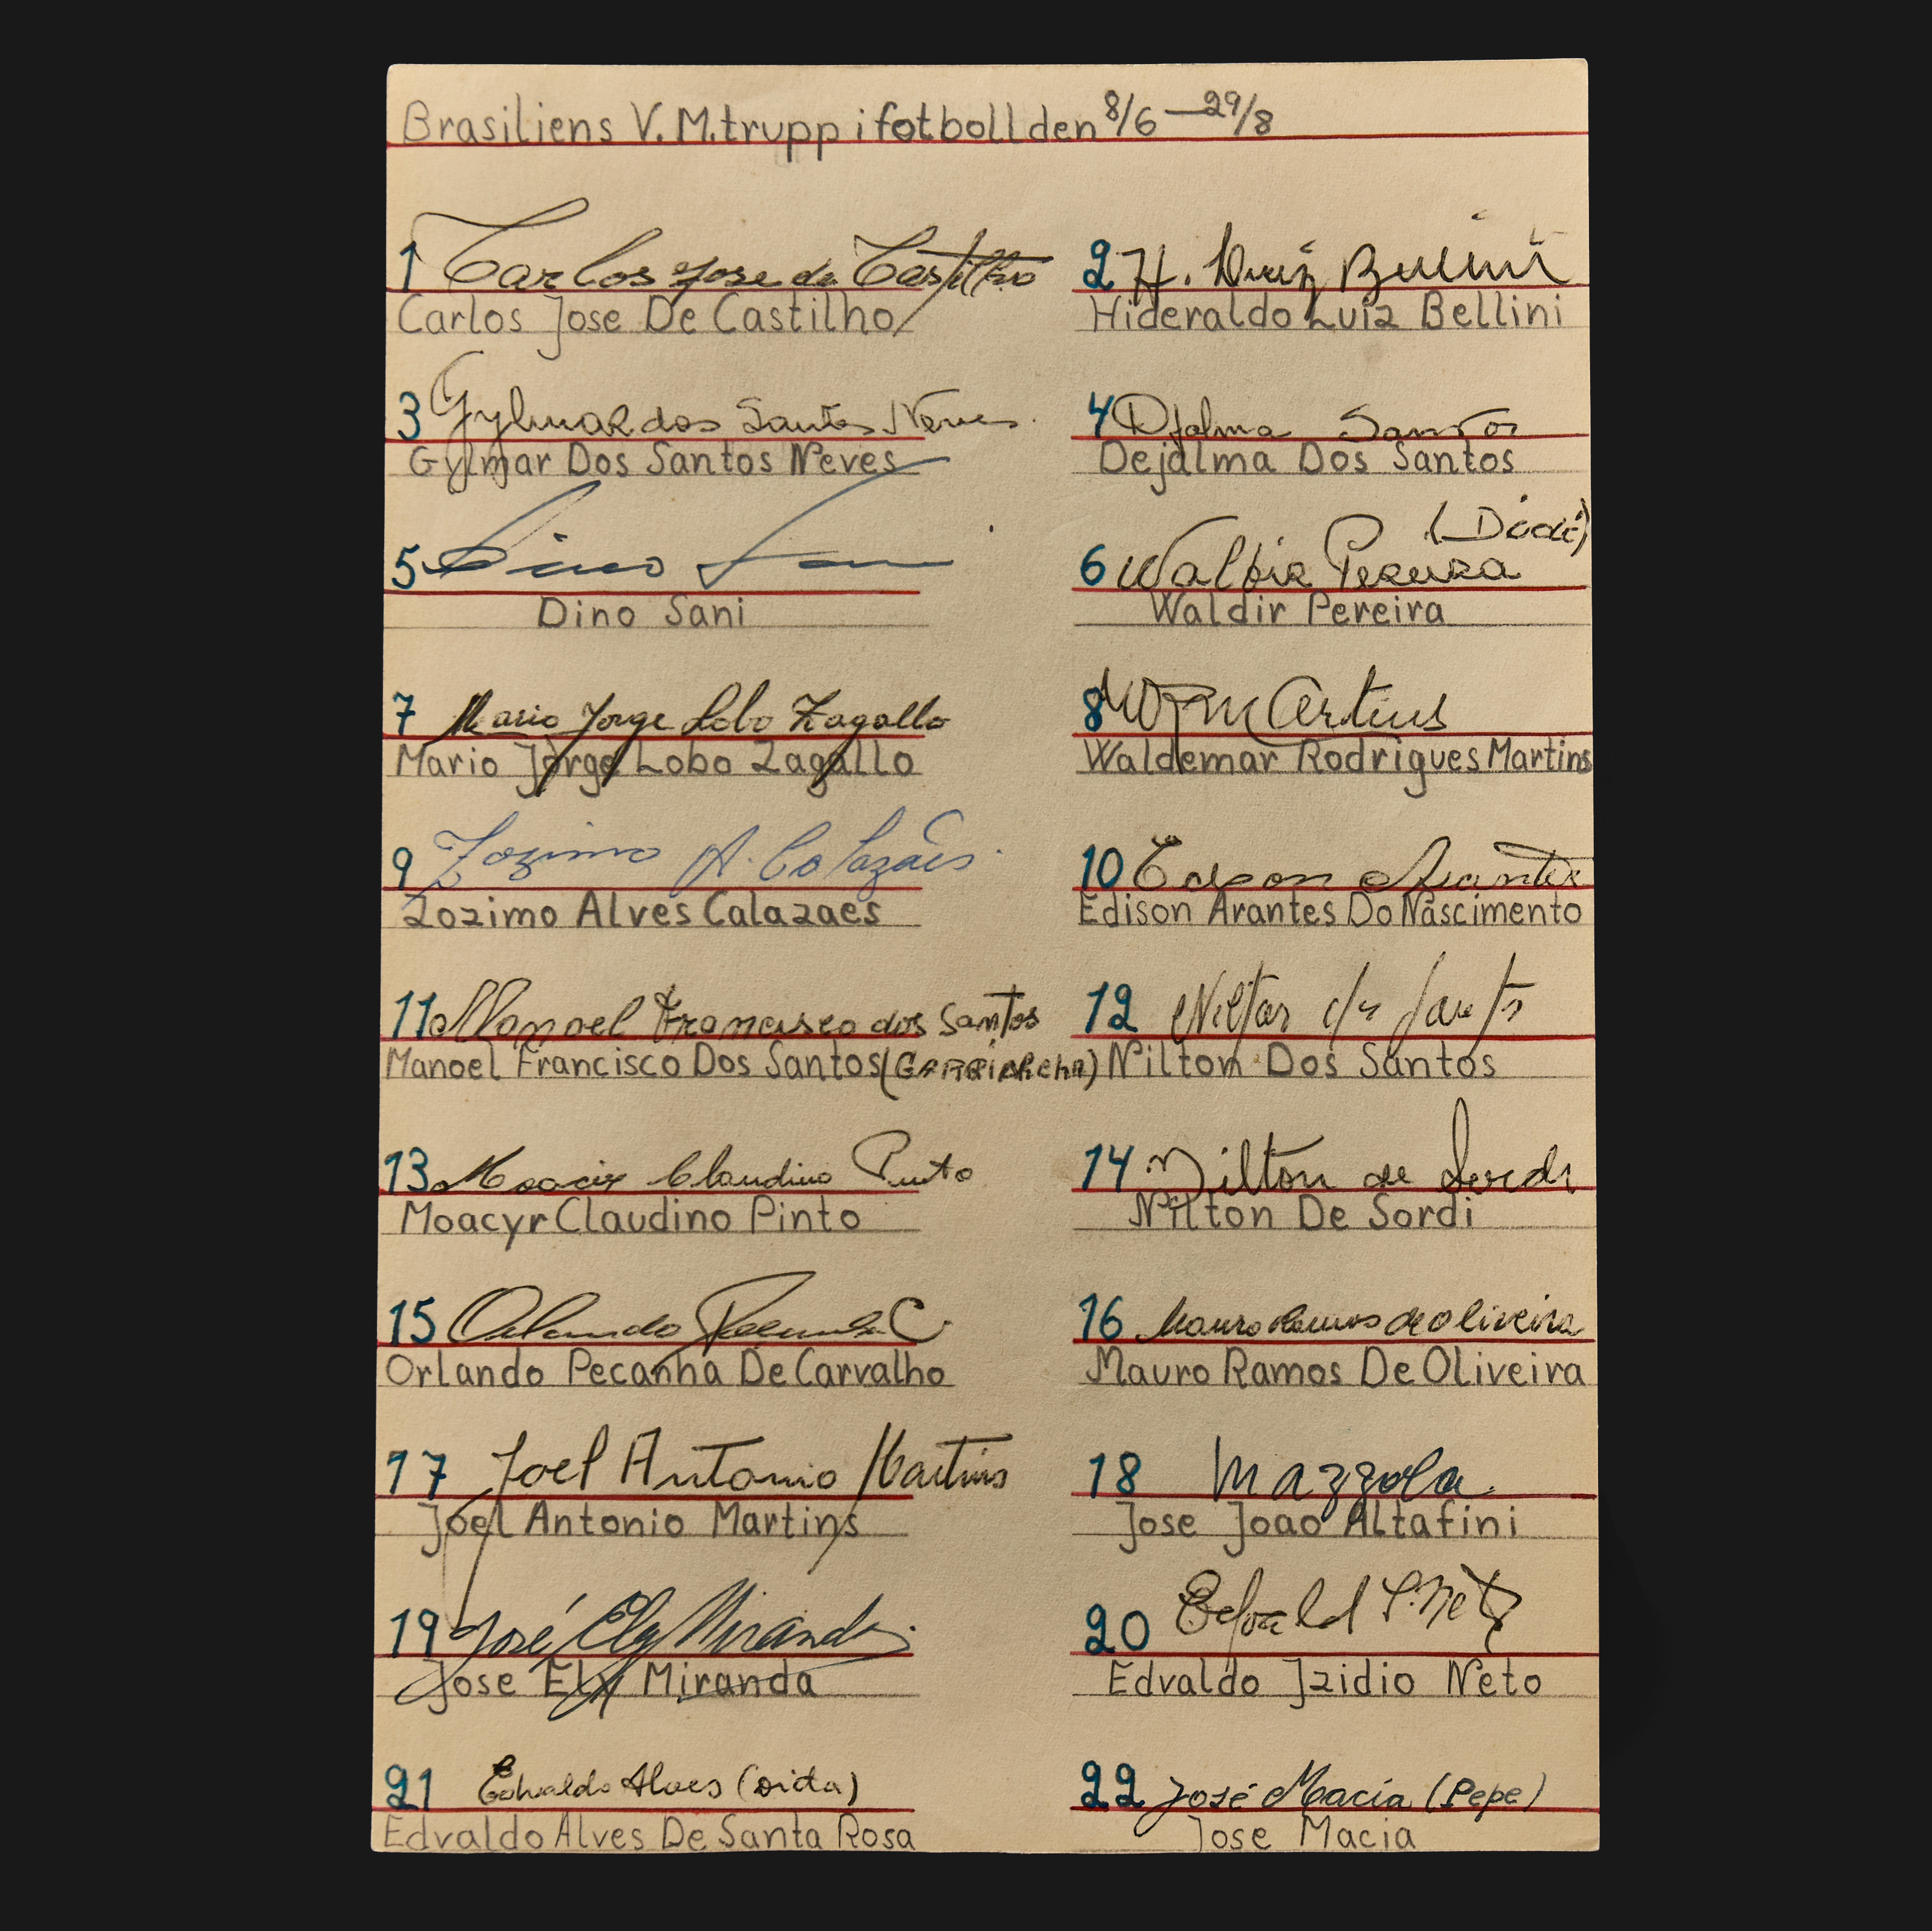 Brasiliens V.M.trupp i fotboll den 8/6 — 29/8
1 Carlos Jose de Castilho
Carlos Jose De Castilho
2 H. Luiz Bellini
Hideraldo Luiz Bellini
3 Gylmar dos Santos Neves
Gylmar Dos Santos Neves
4 Djalma Santos
Dejalma Dos Santos
5 Dino Sani
Dino Sani
(Didi)
6 Waldir Pereira
Waldir Pereira
7 Mario Jorge Lobo Zagallo
Mario Jorge Lobo Zagallo
8 Martins
Waldemar Rodrigues Martins
9 Zozimo A. Calazães
Zozimo Alves Calazaes
10 Edson Arantes
Edison Arantes Do Nascimento
11 Manoel Francisco dos Santos
Manoel Francisco Dos Santos (GARRINCHA)
12 Nilton dos Santos
Nilton Dos Santos
13 Moacir Claudino Pinto
Moacyr Claudino Pinto
14 Nilton de Sordi
Nilton De Sordi
15 Orlando Peçanha C.
Orlando Pecanha De Carvalho
16 Mauro Ramos de Oliveira
Mauro Ramos De Oliveira
17 Joel Antonio Martins
Joel Antonio Martins
18 Mazzola
Jose Joao Altafini
19 José Ely Miranda
Jose Ely Miranda
20 Neto
Edvaldo Izidio Neto
21 Edvaldo Alves (Dida)
Edvaldo Alves De Santa Rosa
22 José Macia (Pepe)
Jose Macia